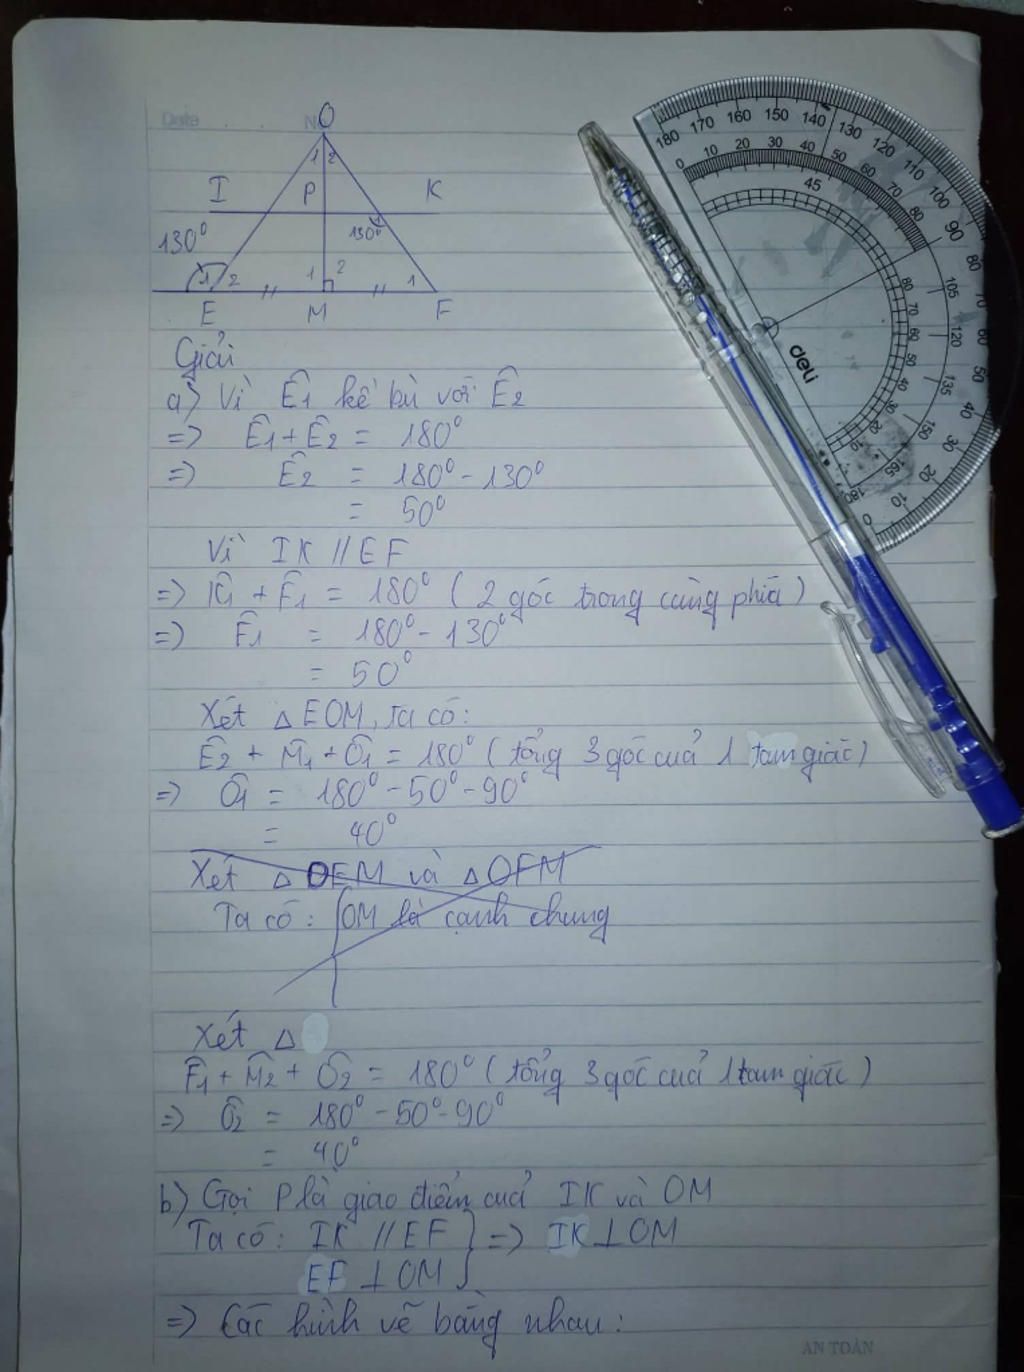 Date . . No
O
1 2
I P K
130° 130°
1 2 1 2 1
E M F
Giải
a) Vì Ê1 kề bù với Ê2
=> Ê1 + Ê2 = 180°
=> Ê2 = 180° - 130°
= 50°
Vì IK // EF
=> K̂1 + F̂1 = 180° (2 góc trong cùng phía)
=> F̂1 = 180° - 130°
= 50°
Xét △ EOM, ta có:
Ê2 + M̂1 + Ô1 = 180° (tổng 3 góc cuả 1 tam giác)
=> Ô1 = 180° - 50° - 90°
= 40°
Xét △ OEM và △ OFM
Ta có: { OM là cạnh chung
Xét △
F̂1 + M̂2 + Ô2 = 180° (tổng 3 góc cuả 1 tam giác)
=> Ô2 = 180° - 50° - 90°
= 40°
b) Gọi P là giao điểm cuả IK và OM
Ta có: IK // EF } => IK ⊥ OM
EF ⊥ OM
=> Các hình vẽ bằng nhau:
AN TOÀN
deli
180 170 160 150 140 130 120 110 100 90 80 70 60 50 40 30 20 10 0
0 10 20 30 40 50 60 70 80
45
105 120 135 150 165 180
80 70 60 50 40 30 20 10